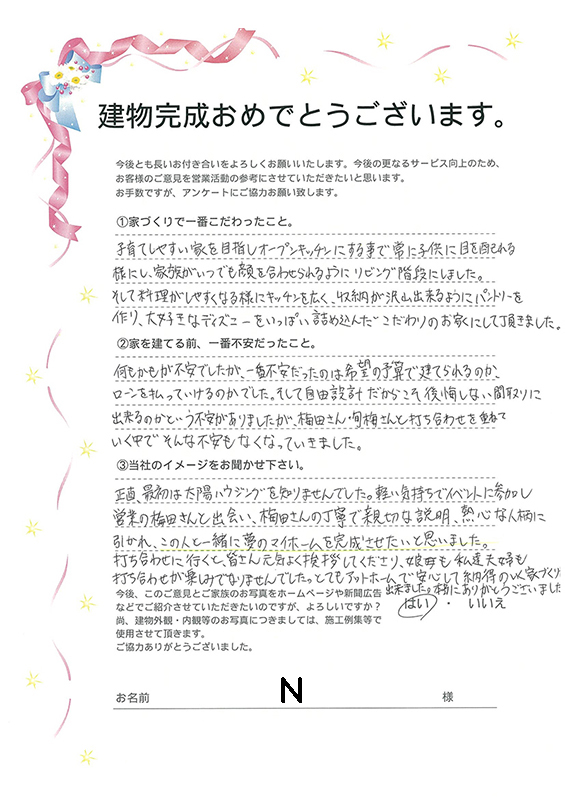 建物完成おめでとうございます。
今後とも長いお付き合いをよろしくお願いいたします。今後の更なるサービス向上のため、
お客様のご意見を営業活動の参考にさせていただきたいと思います。
お手数ですが、アンケートにご協力お願い致します。
①家づくりで一番こだわったこと。
子育てしやすい家を目指しオープンキッチンにする事で常に子供に目を配れる
様にし、家族がいつでも顔を合わせられるようにリビング階段にしました。
そして料理がしやすくなる様にキッチンを広く、収納が沢山出来るようにパントリーを
作り、大好きなディズニーをいっぱい詰め込んだこだわりのお家にして頂きました。
②家を建てる前、一番不安だったこと。
何もかもが不安でしたが、一番不安だったのは希望の予算で建てられるのか、
ローンを払っていけるのかでした。そして自由設計だからこそ後悔しない間取りに
出来るのかという不安がありましたが、梅田さん・旬梅さんと打ち合わせを重ねて
いく中でそんな不安もなくなっていきました。
③当社のイメージをお聞かせ下さい。
正直、最初は太陽ハウジングを知りませんでした。軽い気持ちでイベントに参加し
営業の梅田さんと出会い、梅田さんの丁寧で親切な説明、熱心な人柄に
引かれ、この人と一緒に夢のマイホームを完成させたいと思いました。
打ち合わせに行くと、皆さん元気よく挨拶してくださり、娘も私達夫婦も
打ち合わせが楽しみでなりませんでした。とてもアットホームで安心して納得のいく家づくりが
出来ました。本当にありがとうございました
今後、このご意見とご家族のお写真をホームページや新聞広告
などでご紹介させていただきたいのですが、よろしいですか？
はい ・ いいえ
尚、建物外観・内観等のお写真につきましては、施工例集等で
使用させて頂きます。
ご協力ありがとうございました。
お名前 N 様